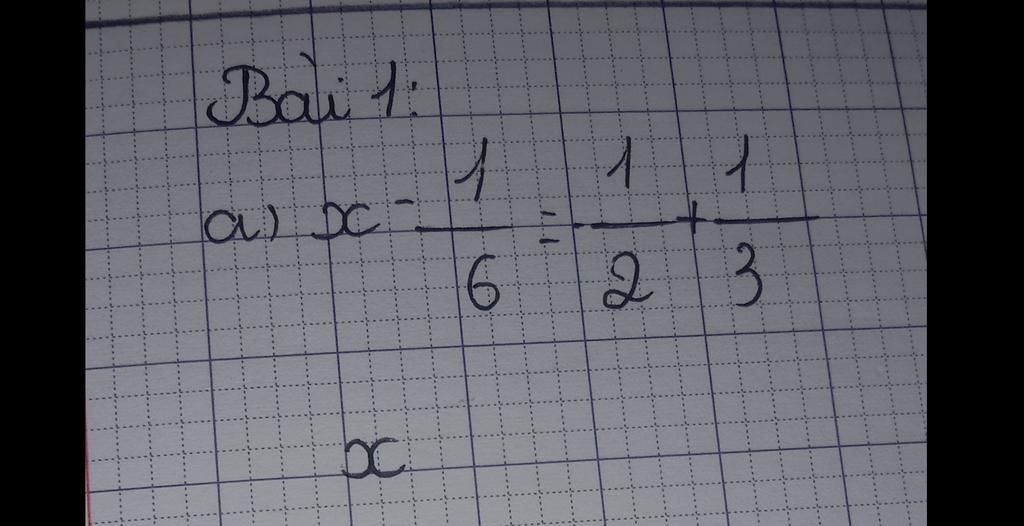 Bài 1:
a) x - 1/6 = -1/2 + 1/3
x